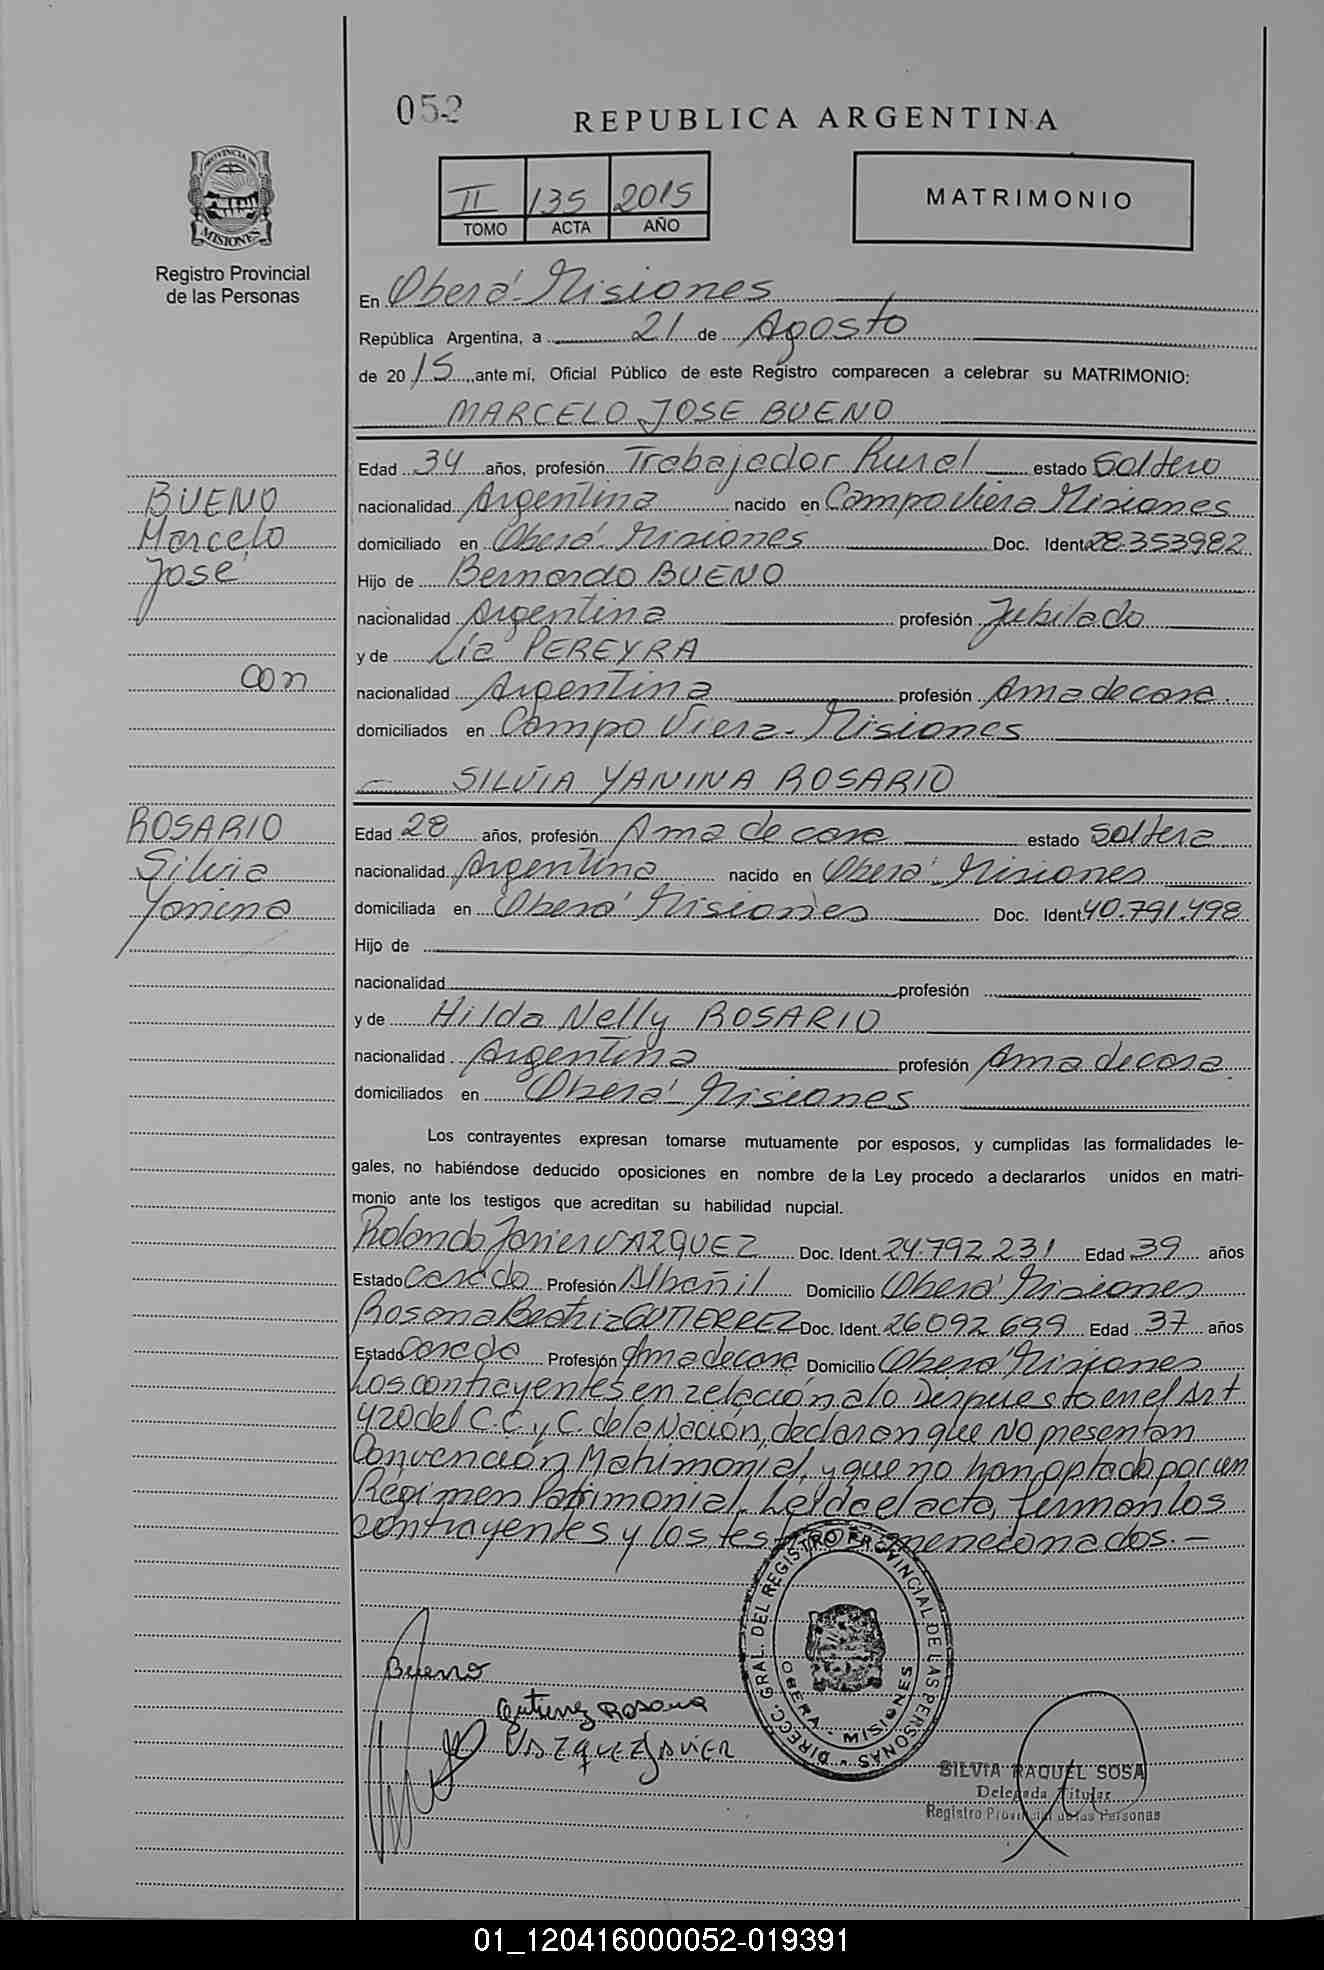 052
REPUBLICA ARGENTINA
II 135 2015
TOMO ACTA AÑO
MATRIMONIO
PROVINCIA DE
MISIONES
Registro Provincial
de las Personas
En Oberá - Misiones
República Argentina, a 21 de Agosto
de 2015, ante mí, Oficial Público de este Registro comparecen a celebrar su MATRIMONIO:
MARCELO JOSE BUENO
Edad 34 años, profesión Trabajador Rural estado Soltero
BUENO
nacionalidad Argentina nacido en Campo Viera Misiones
Marcelo
domiciliado en Oberá - Misiones Doc. Ident. 28.353982
José
Hijo de Bernardo BUENO
nacionalidad Argentina profesión Jubilado
y de Lía PEREYRA
con
nacionalidad Argentina profesión Ama de casa.
domiciliados en Campo Viera - Misiones
SILVIA YANINA ROSARIO
ROSARIO
Edad 28 años, profesión Ama de casa estado Soltera
Silvia
nacionalidad Argentina nacido en Oberá - Misiones
Yanina
domiciliada en Oberá - Misiones Doc. Ident. 40.791.498
Hijo de
nacionalidad profesión
y de Hilda Nelly ROSARIO
nacionalidad Argentina profesión Ama de casa.
domiciliados en Oberá - Misiones
Los contrayentes expresan tomarse mutuamente por esposos, y cumplidas las formalidades le-
gales, no habiéndose deducido oposiciones en nombre de la Ley procedo a declararlos unidos en matri-
monio ante los testigos que acreditan su habilidad nupcial.
Rolando Javier VAZQUEZ Doc. Ident. 24.792.231 Edad 39 años
Estado Casado Profesión Albañil Domicilio Oberá - Misiones
Rosana Beatriz GUTIERREZ Doc. Ident. 26.092.699 Edad 37 años
Estado Casada Profesión Ama de casa Domicilio Oberá Misiones
Los contrayentes en relación a lo Dispuesto en el Art
420 del C.C. y C. de la Nación, declaran que No presentan
Convención Matrimonial, y que no han optado por un
Régimen Patrimonial. Leída el acta, firman los
contrayentes y los testigos menecionados. -
Bueno
Gutierrez Rosana
VAZQUEZ JAVIER
DIRECC. GRAL. DEL REGISTRO PROVINCIAL DE LAS PERSONAS
OBERA - MISIONES
SILVIA RAQUEL SOSA
Delegada Titular
Registro Provincial de las Personas
01_120416000052-019391